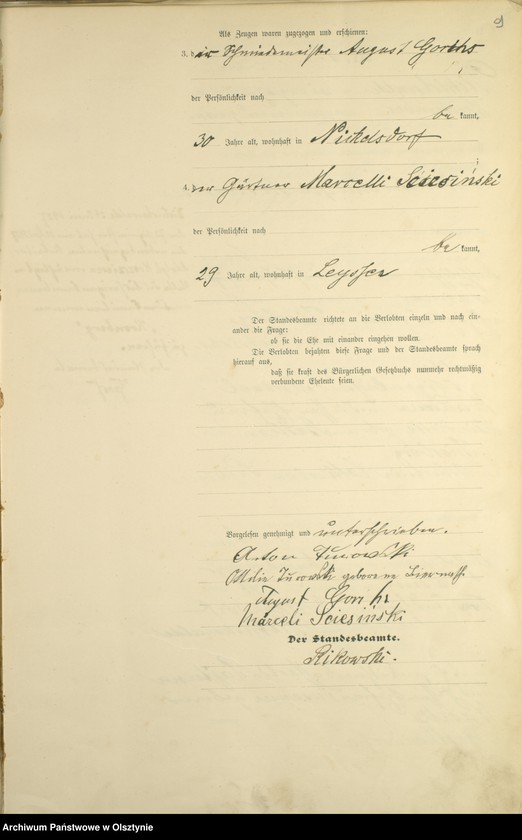 9
Als Zeugen waren zugezogen und erschienen:
3. der Schmiedemeister August
der Persönlichkeit nach
be kannt,
30 Jahre alt, wohnhaft in Nickelsdorf
4. der Gärtner Marcelli Sciesiński
der Persönlichkeit nach
be kannt,
29 Jahre alt, wohnhaft in Leyssen
Der Standesbeamte richtete an die Verlobten einzeln und nach ein-
ander die Frage:
ob sie die Ehe mit einander eingehen wollen.
Die Verlobten bejahten diese Frage und der Standesbeamte sprach
hierauf aus,
daß sie kraft des Bürgerlichen Gesetzbuchs nunmehr rechtmäßig
verbundene Eheleute seien.
Vorgelesen, genehmigt und unterschrieben.
Anton Turowski
Ottilie Turowski geborene
August
Marceli Sciesiński
Der Standesbeamte.
Rikowski.
Archiwum Państwowe w Olsztynie